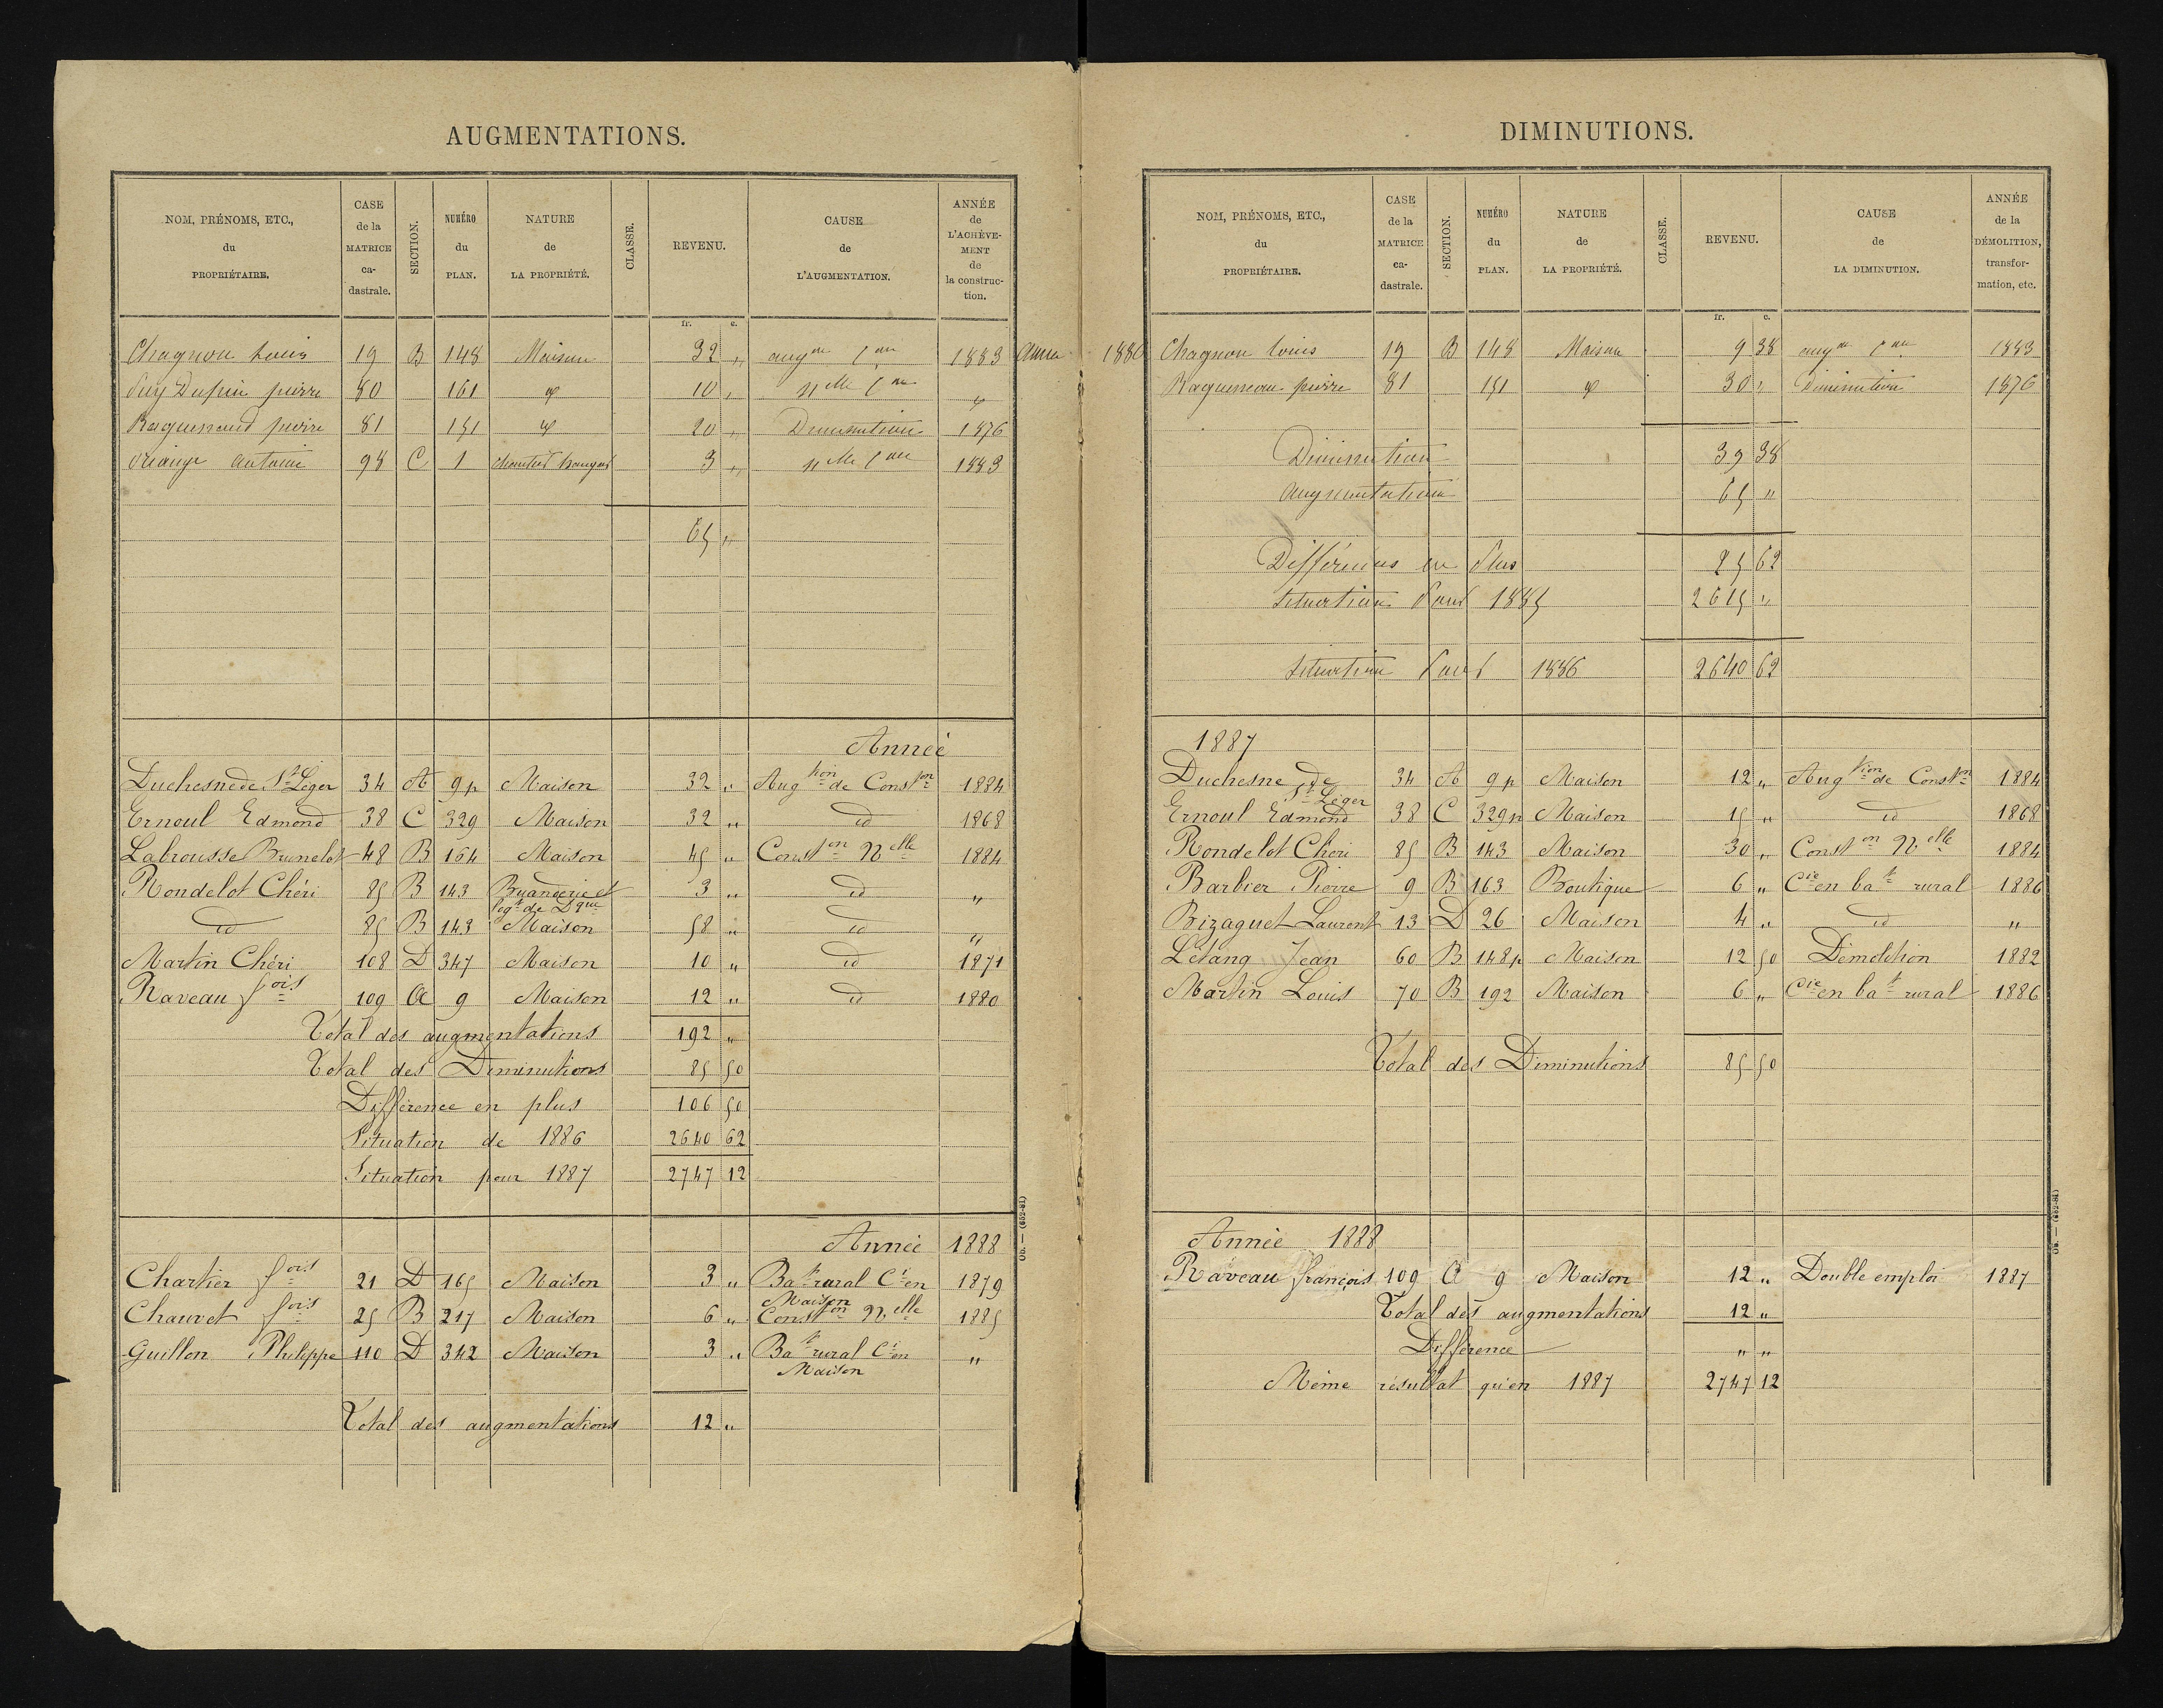 AUGMENTATIONS.
NOM, PRÉNOMS, ETC., du PROPRIÉTAIRE.
CASE de la MATRICE ca-dastrale.
SECTION.
NUMÉRO du PLAN.
NATURE de LA PROPRIÉTÉ.
CLASSE.
REVENU.
CAUSE de L'AUGMENTATION.
ANNÉE de L'ACHÈVE-MENT de la construc-tion.
fr. c.
Chagnon Louis 19 B 148 Maison 32 " augon Con 1883
Puy Dupin pierre 80 161 id 10 " nelle Con id
Raguenaud pierre 81 151 id 20 " Diminution 1876
antoine 98 C 1 3 " nelle Con 1883
65 "
Année
Duchesne de St Léger 34 A 9p Maison 32 " Augtion de Conston 1884
Ernoul Edmond 38 C 329 Maison 32 " id 1868
Labrousse Brunelot 48 B 164 Maison 45 " Conston Nelle 1884
Rondelot Chéri 85 B 143 Buanderie et Logt de Dque 3 " id "
id 85 B 143 Maison 58 " id "
Martin Chéri 108 D 347 Maison 10 " id 1871
Raveau fois 109 A 9 Maison 12 " id 1880
Total des augmentations 192 "
Total des Diminutions 85 50
Différence en plus 106 50
Situation de 1886 2640 62
Situation pour 1887 2747 12
Année 1888
Chartier fois 21 D 165 Maison 3 " Bat rural Cti en Maison 1879
Chauvet fois 25 B 217 Maison 6 " Conston Nelle 1885
Guillon Philippe 110 D 342 Maison 3 " Bat rural Cti en Maison "
Total des augmentations 12 "
Ob. — (652-81)
Année 1886
DIMINUTIONS.
NOM, PRÉNOMS, ETC., du PROPRIÉTAIRE.
CASE de la MATRICE ca-dastrale.
SECTION.
NUMÉRO du PLAN.
NATURE de LA PROPRIÉTÉ.
CLASSE.
REVENU.
CAUSE de LA DIMINUTION.
ANNÉE de la DÉMOLITION, transfor-mation, etc.
fr. c.
Chagnon Louis 19 B 148 Maison 9 38 augon Con 1883
Raguenau pierre 81 151 id 30 " Diminution 1876
Diminution 39 38
augmentation 65 "
Différences en Plus 25 62
Situation Pour 1885 2615 "
Situation Pour 1886 2640 62
1887
Duchesne de St Léger 34 A 9p Maison 12 " Augtion de Conston 1884
Ernoul Edmond 38 C 329p Maison 15 " id 1868
Rondelot Chéri 85 B 143 Maison 30 " Conston Nelle 1884
Barbier Pierre 9 B 163 Boutique 6 " Cie en bat rural 1886
Bizaguet Laurent 13 D 26 Maison 4 " id "
Létang Jean 60 B 148p Maison 12 50 Démolition 1882
Martin Louis 70 B 192 Maison 6 " Cie en bat rural 1886
Total des Diminutions 85 50
Année 1888
Raveau françois 109 A 9 Maison 12 " Double emploi 1887
Total des augmentations 12 "
Différence " "
Même résultat qu'en 1887 2747 12
Ob. — (652-81)